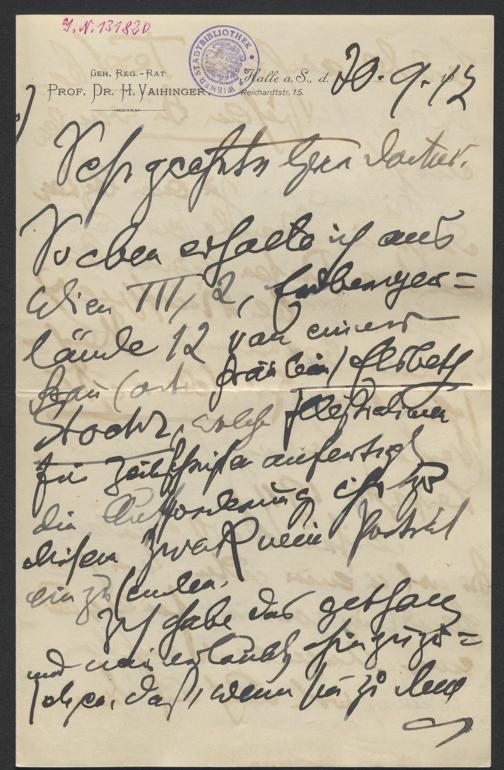 I.N. 131820
WIENER STADTBIBLIOTHEK
GEH. REG.-RAT
PROF. DR. H. VAIHINGER.
Halle a. S., d. 20.9.12
Reichardtstr. 15.
Sehr geehrter Herr Doctor.
Soeben erhalte ich aus
Wien III/2, Erdberger=
lände 12 von einer
Frau (od. Fräulein) Elsbeth
welche
für Zeitschriften anfertigt
die Aufforderung ihr zu
diesem Zweck mein Porträt
einzusenden.
Ich habe das gethan
und mir erlaubt hinzuzu=
daß, wenn sie zu